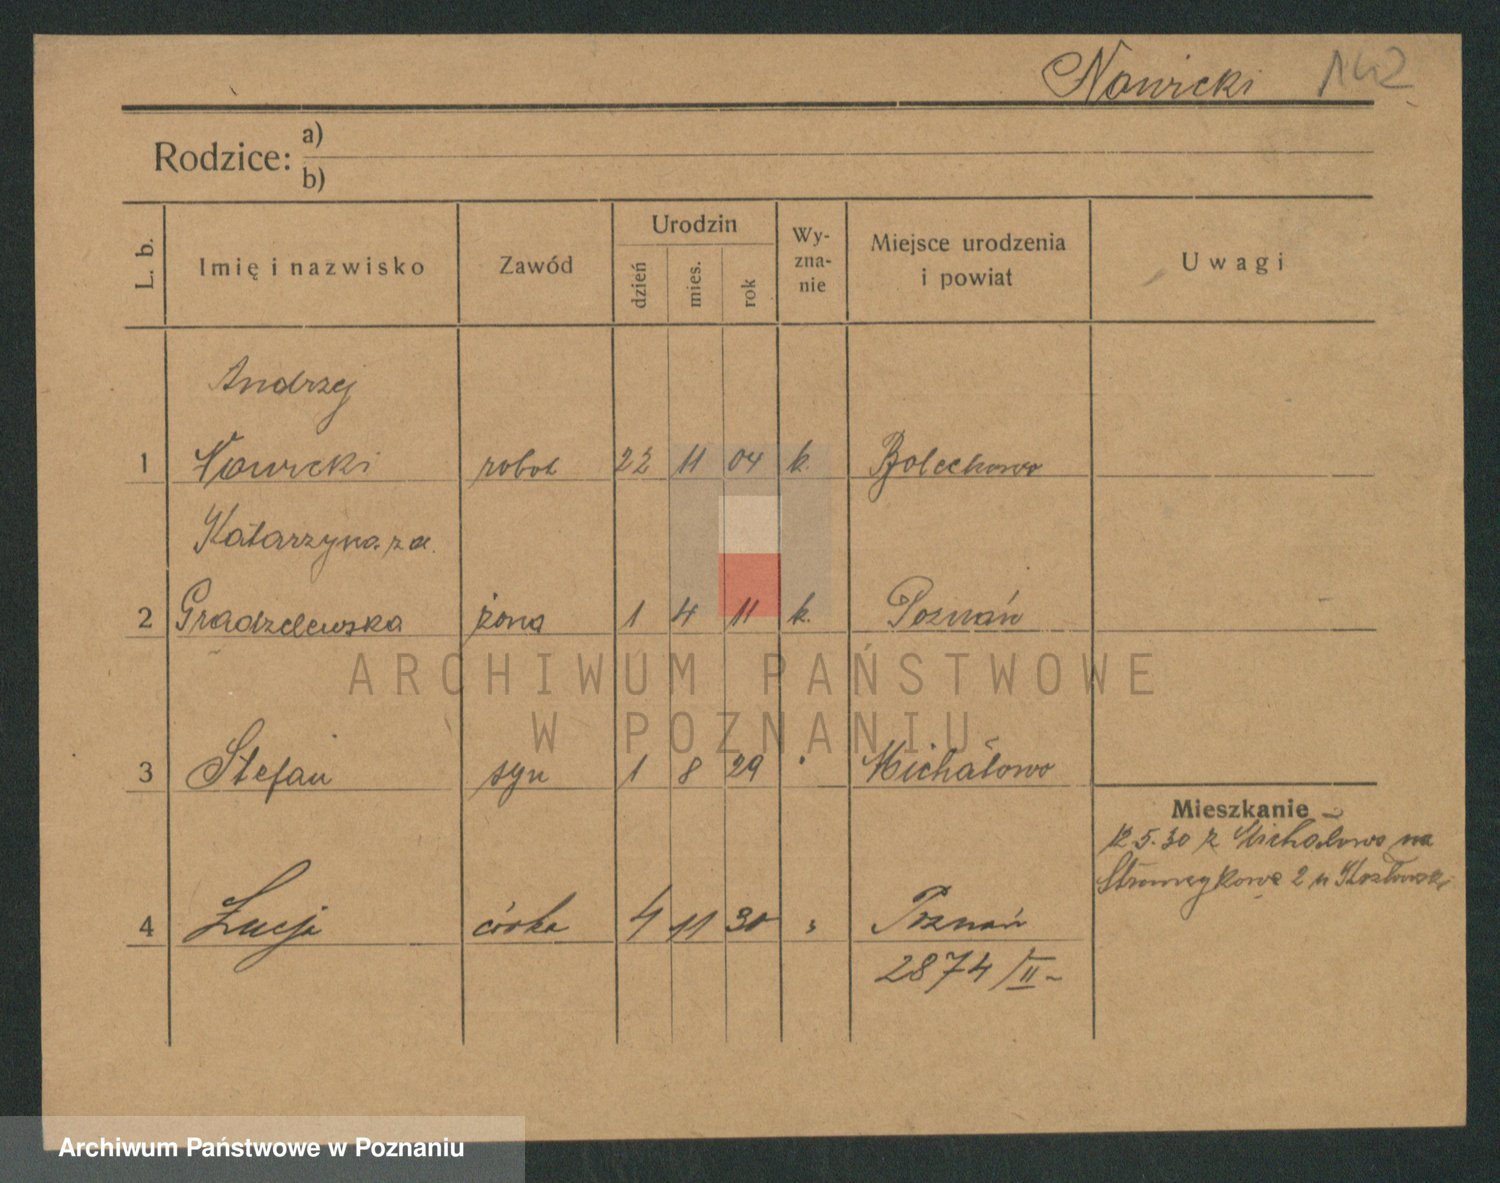 Nowicki 142
Rodzice: a)
b)
L. b.
Imię i nazwisko
Zawód
Urodzin
dzień
mies.
rok
Wy-
zna-
nie
Miejsce urodzenia
i powiat
Uwagi
Andrzej
1 Nowicki robot 22 11 04 k. Bolechowo
Katarzyna z d.
2 Gradzelewska żona 1 4 11 k. Poznań
3 Stefan syn 1 8 29 " Michałowo
Mieszkanie
12.5.30 z Michałowo na
2 u Kozłowski
4 Łucja córka 4 11 30 " Poznań
2874/II
ARCHIWUM PAŃSTWOWE
W POZNANIU
Archiwum Państwowe w Poznaniu